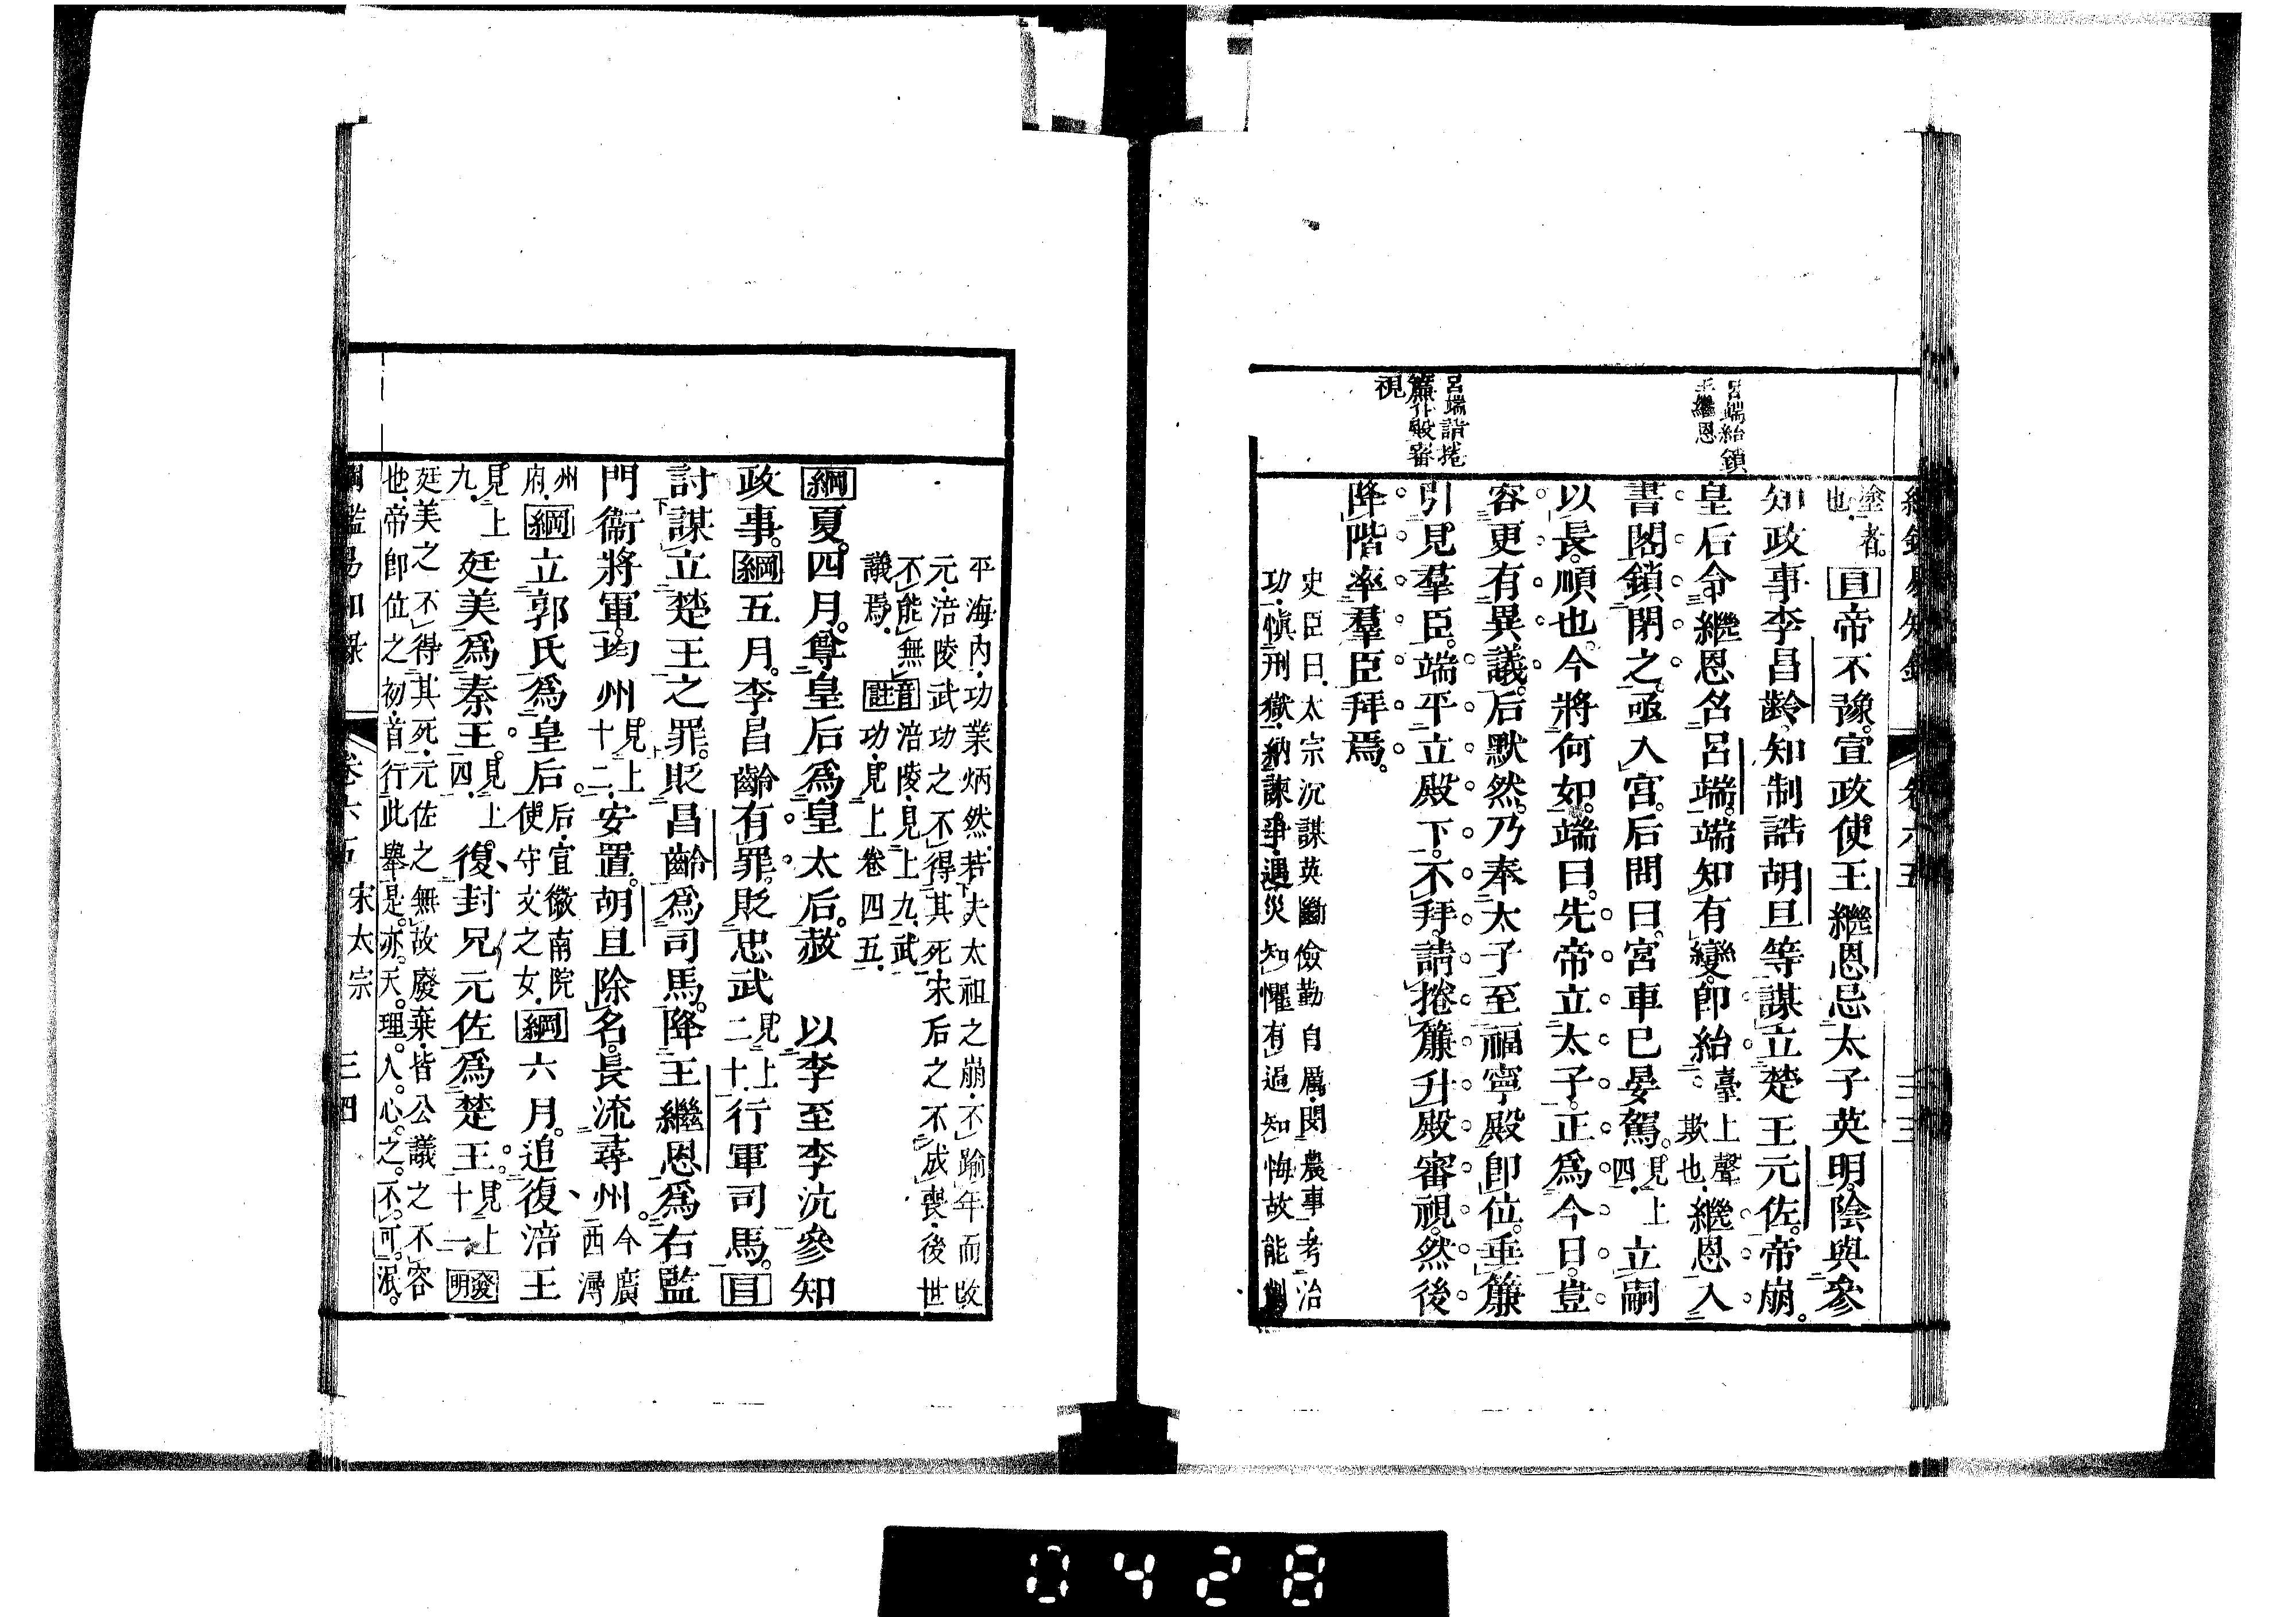 呂端紿鎖
王繼恩
呂端請捲
簾升殿審
視
塗者
也
目帝不豫宣政使王繼恩忌太子英明陰與參
知政事李昌齡知制誥胡旦等謀立楚王元佐帝崩
皇后令繼恩名呂端端知有變卽紿臺上聲欺也繼恩入
書閣鎖閉之亟入宮后問曰宮車已晏駕見上四立嗣
以長順也今將何如端曰先帝立太子正爲今日豈
容更有異議后默然乃奉太子至福寧殿卽位垂簾
引見羣臣端平立殿下不拜請捲簾升殿審視然後
降階率羣臣拜焉
史臣曰太宗沉謀英斷儉勤自厲閔農事考治
功愼刑獄納諫爭遇災知懼有過知悔故能削
平海內功業炳然若夫太祖之崩不踰年而改
元涪陵武功之不得其死宋后之不成喪後世
不能無
議焉
音涪陵見上九武
註功見上卷四五
綱夏四月尊皇后爲皇太后赦 以李至李沆參知
政事綱五月李昌齡有罪貶忠武見上二十行軍司馬目
討謀立楚王之罪貶昌齡爲司馬降王繼恩爲右監
門衞將軍均州見上十二安置胡旦除名長流尋州今廣西潯
州
府綱立郭氏爲皇后后宣徽南院使守文之女綱六月追復涪王
見上
九廷美爲秦王見上四復封兄元佐爲楚王見上十一發明
廷美之不得其死元佐之無故廢棄皆公議之不容
也帝卽位之初首行此舉是亦天理人心之不可泯
宋太宗 三四